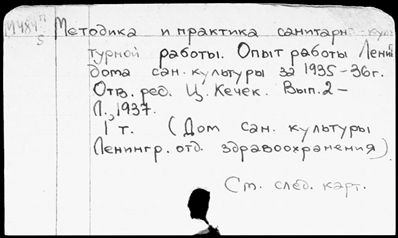 М484
5
Методика и практика санитарн. куль
турной работы. Опыт работы Ленин
дома сан. культуры за 1935-36г.
Отв. ред. Ц. Кечек. Вып. 2-
Л., 1937.
1 т. (Дом сан. культуры
Ленингр. отд. здравоохранения)
См. след. карт.